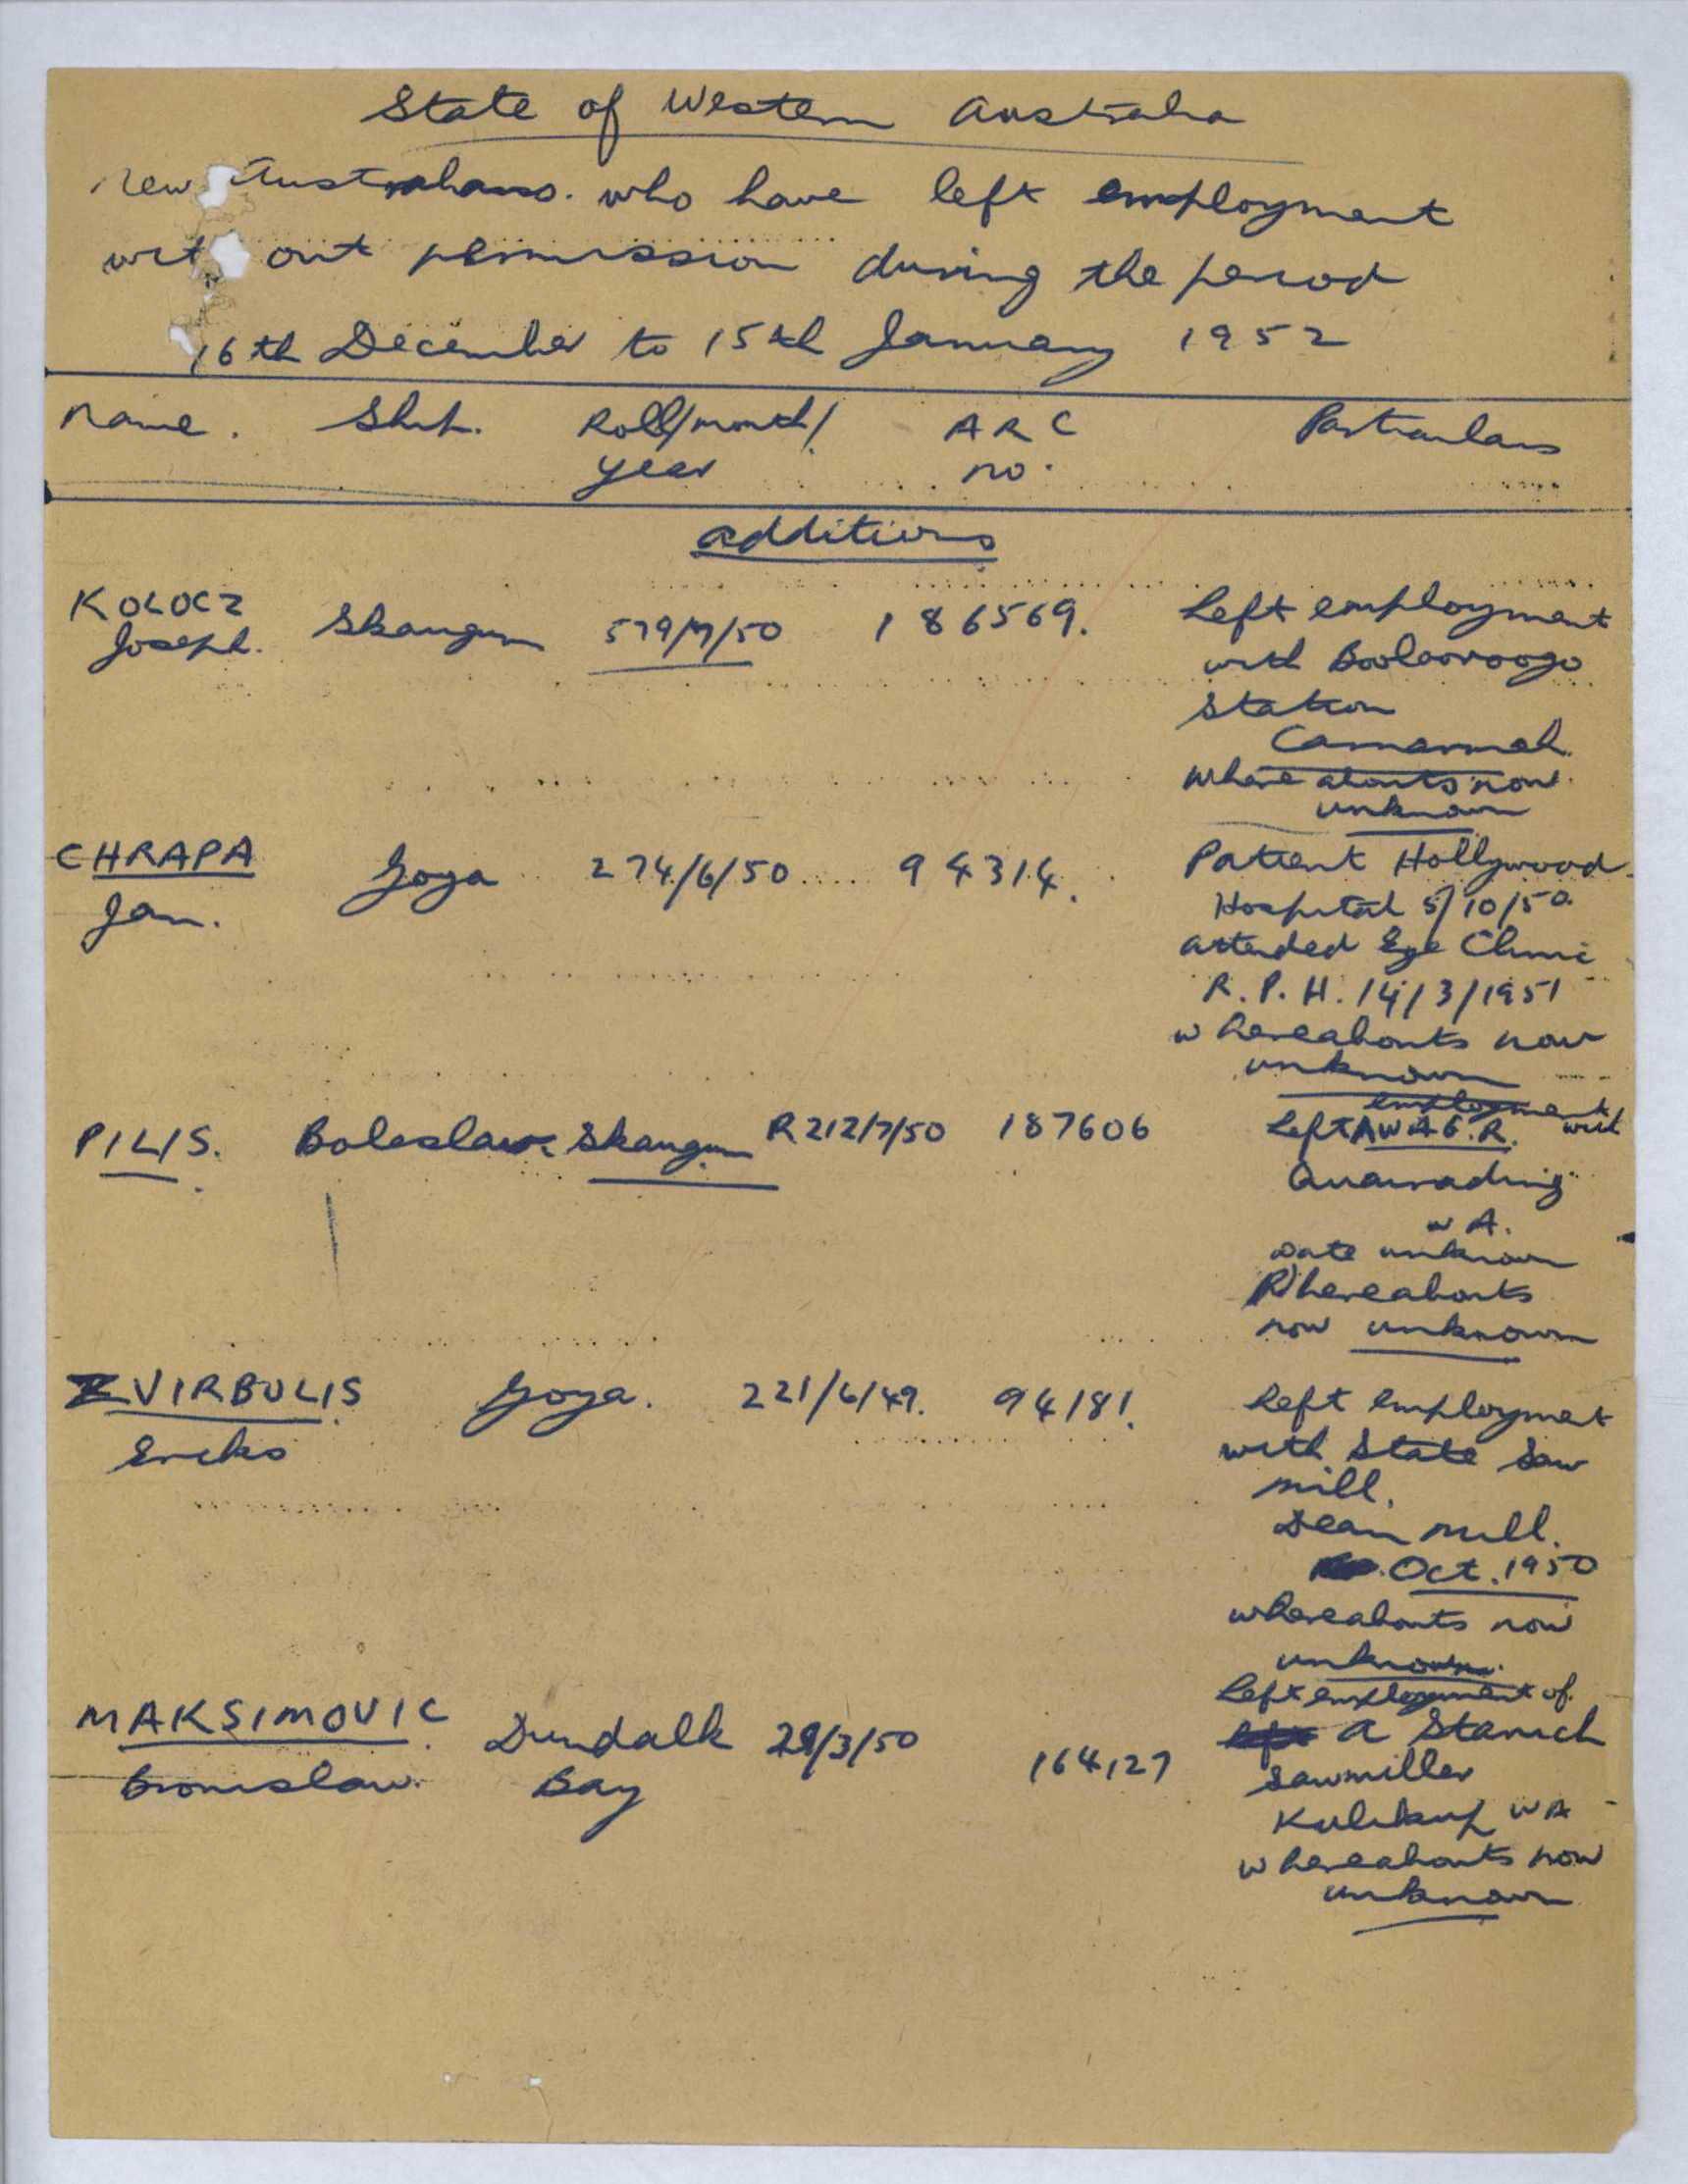 State of Western Australia
New Australians. who have left employment
without permission during the period
16th December to 15th January 1952
Name. Ship. Roll/month/ A R C Particulars
year no.
additions
KOLOCZ Skaugum 579/7/50 186569. Left employment
Joseph. with Boolooroogo
Station
Carnarvon
whereabouts now
unknown
CHRAPA Goya 274/6/50 94314. Patient Hollywood
Jan. Hospital 5/10/50
attended Eye Clinic
R.P.H. 14/3/1951
whereabouts now
unknown
employment with
PILIS. Boleslaw Skaugum R212/7/50 187606 Left W A G. R.
Quairading
W A.
Date unknown
Whereabouts
now unknown
ZVIRBULIS Goya. 221/6/49. 94181. Left employment
Eriks with State Saw
mill.
Dean mill.
Oct. 1950
whereabouts now
unknown.
Left employment of
MAKSIMOVIC Dundalk 29/3/50 164127 A Stanich
Bronislaw. Bay Sawmiller
Kulikup WA
whereabouts now
unknown